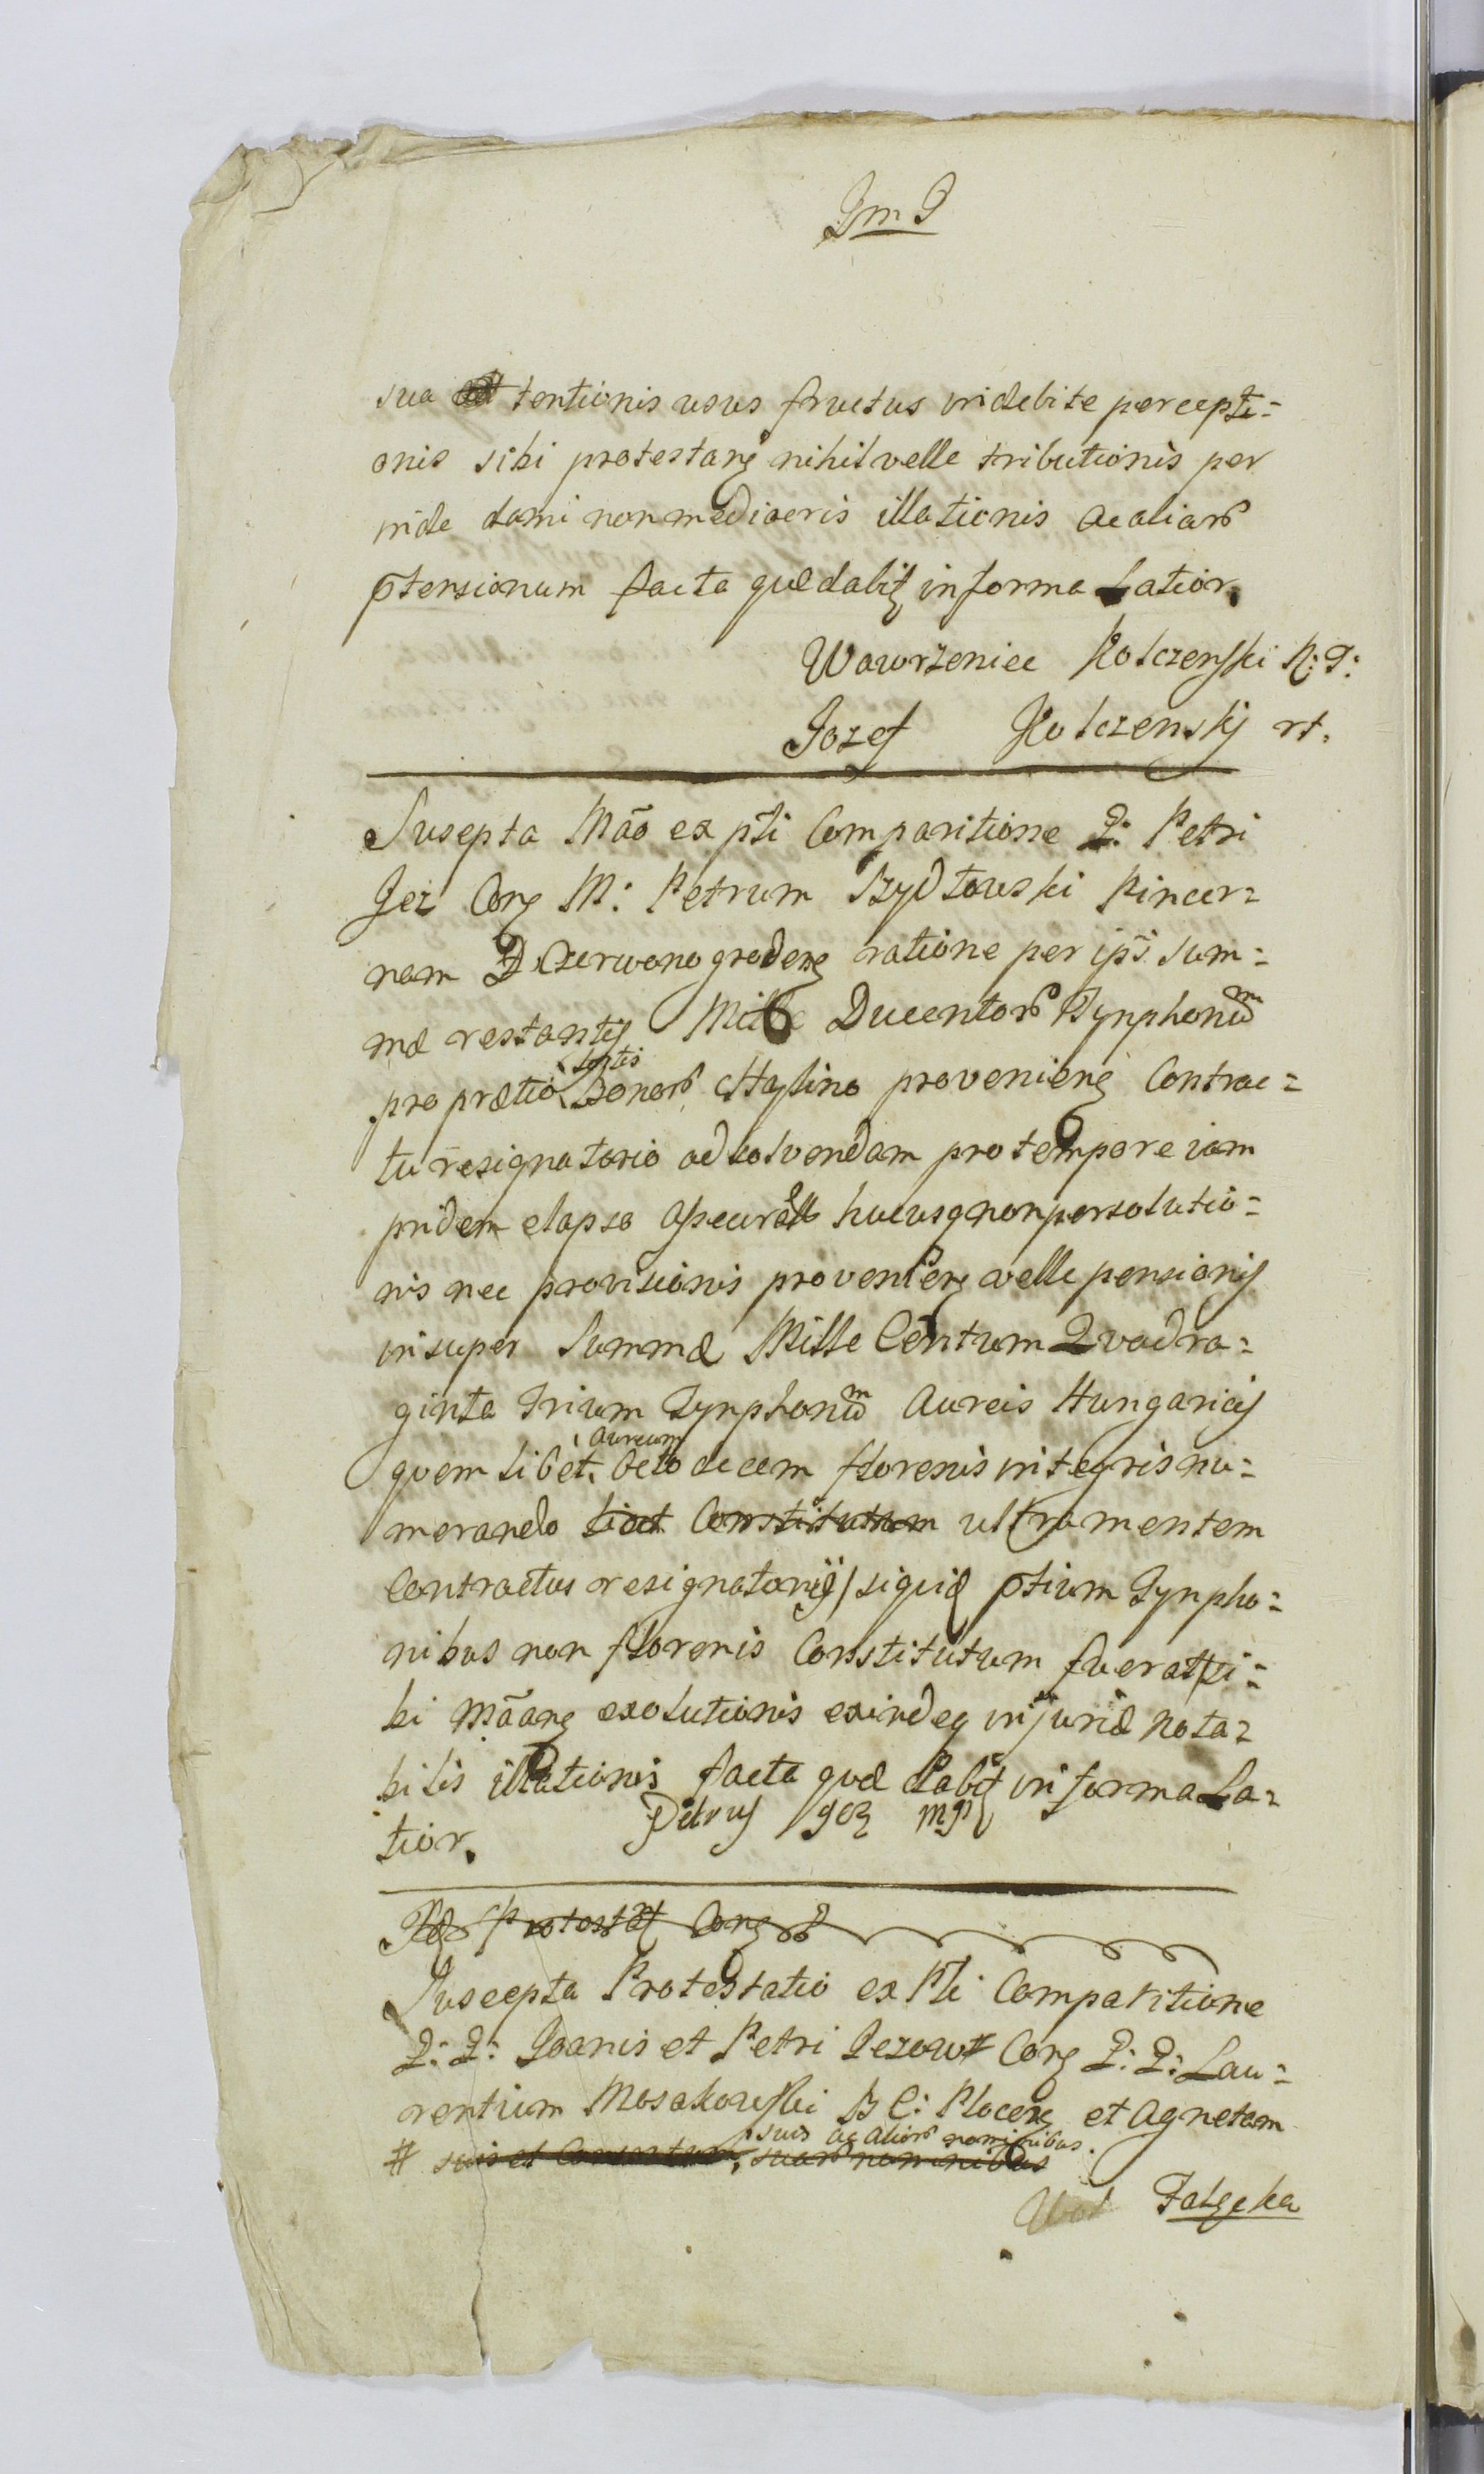 Im I
sua tentionis usus fructus indebite percepti=
onis sibi protestanẽ nihil velle tributionis per
inde damni non mediocris illationis ac aliarũ
p̃tensionum facta quæ dabitʒ in forma Latior.
Wawrzeniec Kolczenski
Jozef Kolczenskj
Suscepta Mão ex pñti Comparitione G: Petri
Jez Conʒ M: Petrum Szydłowski Pincer=
nam D: Czerwonogrodenʒ ratione per ipš. sum=
mæ restantis Mille Ducentorũ Tynphonũm
pro prætio sortis Bonorũ provenienʒ Contrac=
tu resignatorio ad solvendam pro tempore iam
pridem elapso hucusq non persolutio=
nis nec provisionis provenienʒ velle pensionis
insuper Summæ Mille Centum Quadra=
ginta Trium Tynphonũm Aureis Hungaricis
quem libet aureum Octo decem florenis integris nu=
merando Constitutum ultra mentem
Contractus resignatorij / siquid p̃tium Tynpho=
nibus non florenis Constitutum fuerat / si=
bi mãanʒ exolutionis exindeq injuriæ nota=
bilis illationis facta quæ dabitʒ in forma La=
tior. Petrus Jez mp
Protestatʒ Conʒ
Suscepta Protestatio ex Pñti Comparitione
G: G: Joanis et Petri Jezow Conʒ G: G: Lau=
rentium Mosakowski B C: Plocenʒ et Agnetam
suis ac aliorũ nominibus
# suis et suorũ nominibus